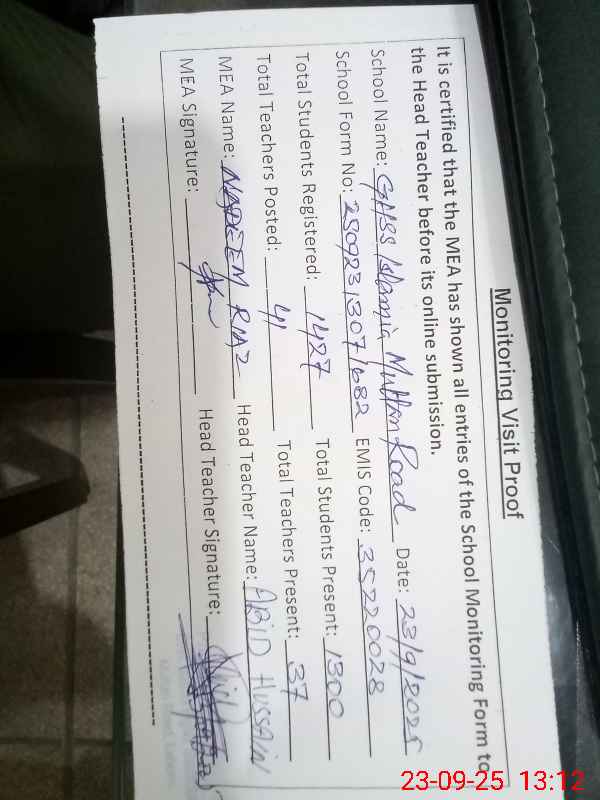 Monitoring Visit Proof
It is certified that the MEA has shown all entries of the School Monitoring Form to
the Head Teacher before its online submission.
School Name: GHSS Islamia Multan Road Date: 23/9/2025
School Form No: 23092313071682 EMIS Code: 35220028
Total Students Registered: 1427 Total Students Present: 1300
Total Teachers Posted: 41 Total Teachers Present: 37
MEA Name: NADEEM RIAZ Head Teacher Name: ABID HUSSAIN
MEA Signature: Head Teacher Signature:
23-09-25 13:12